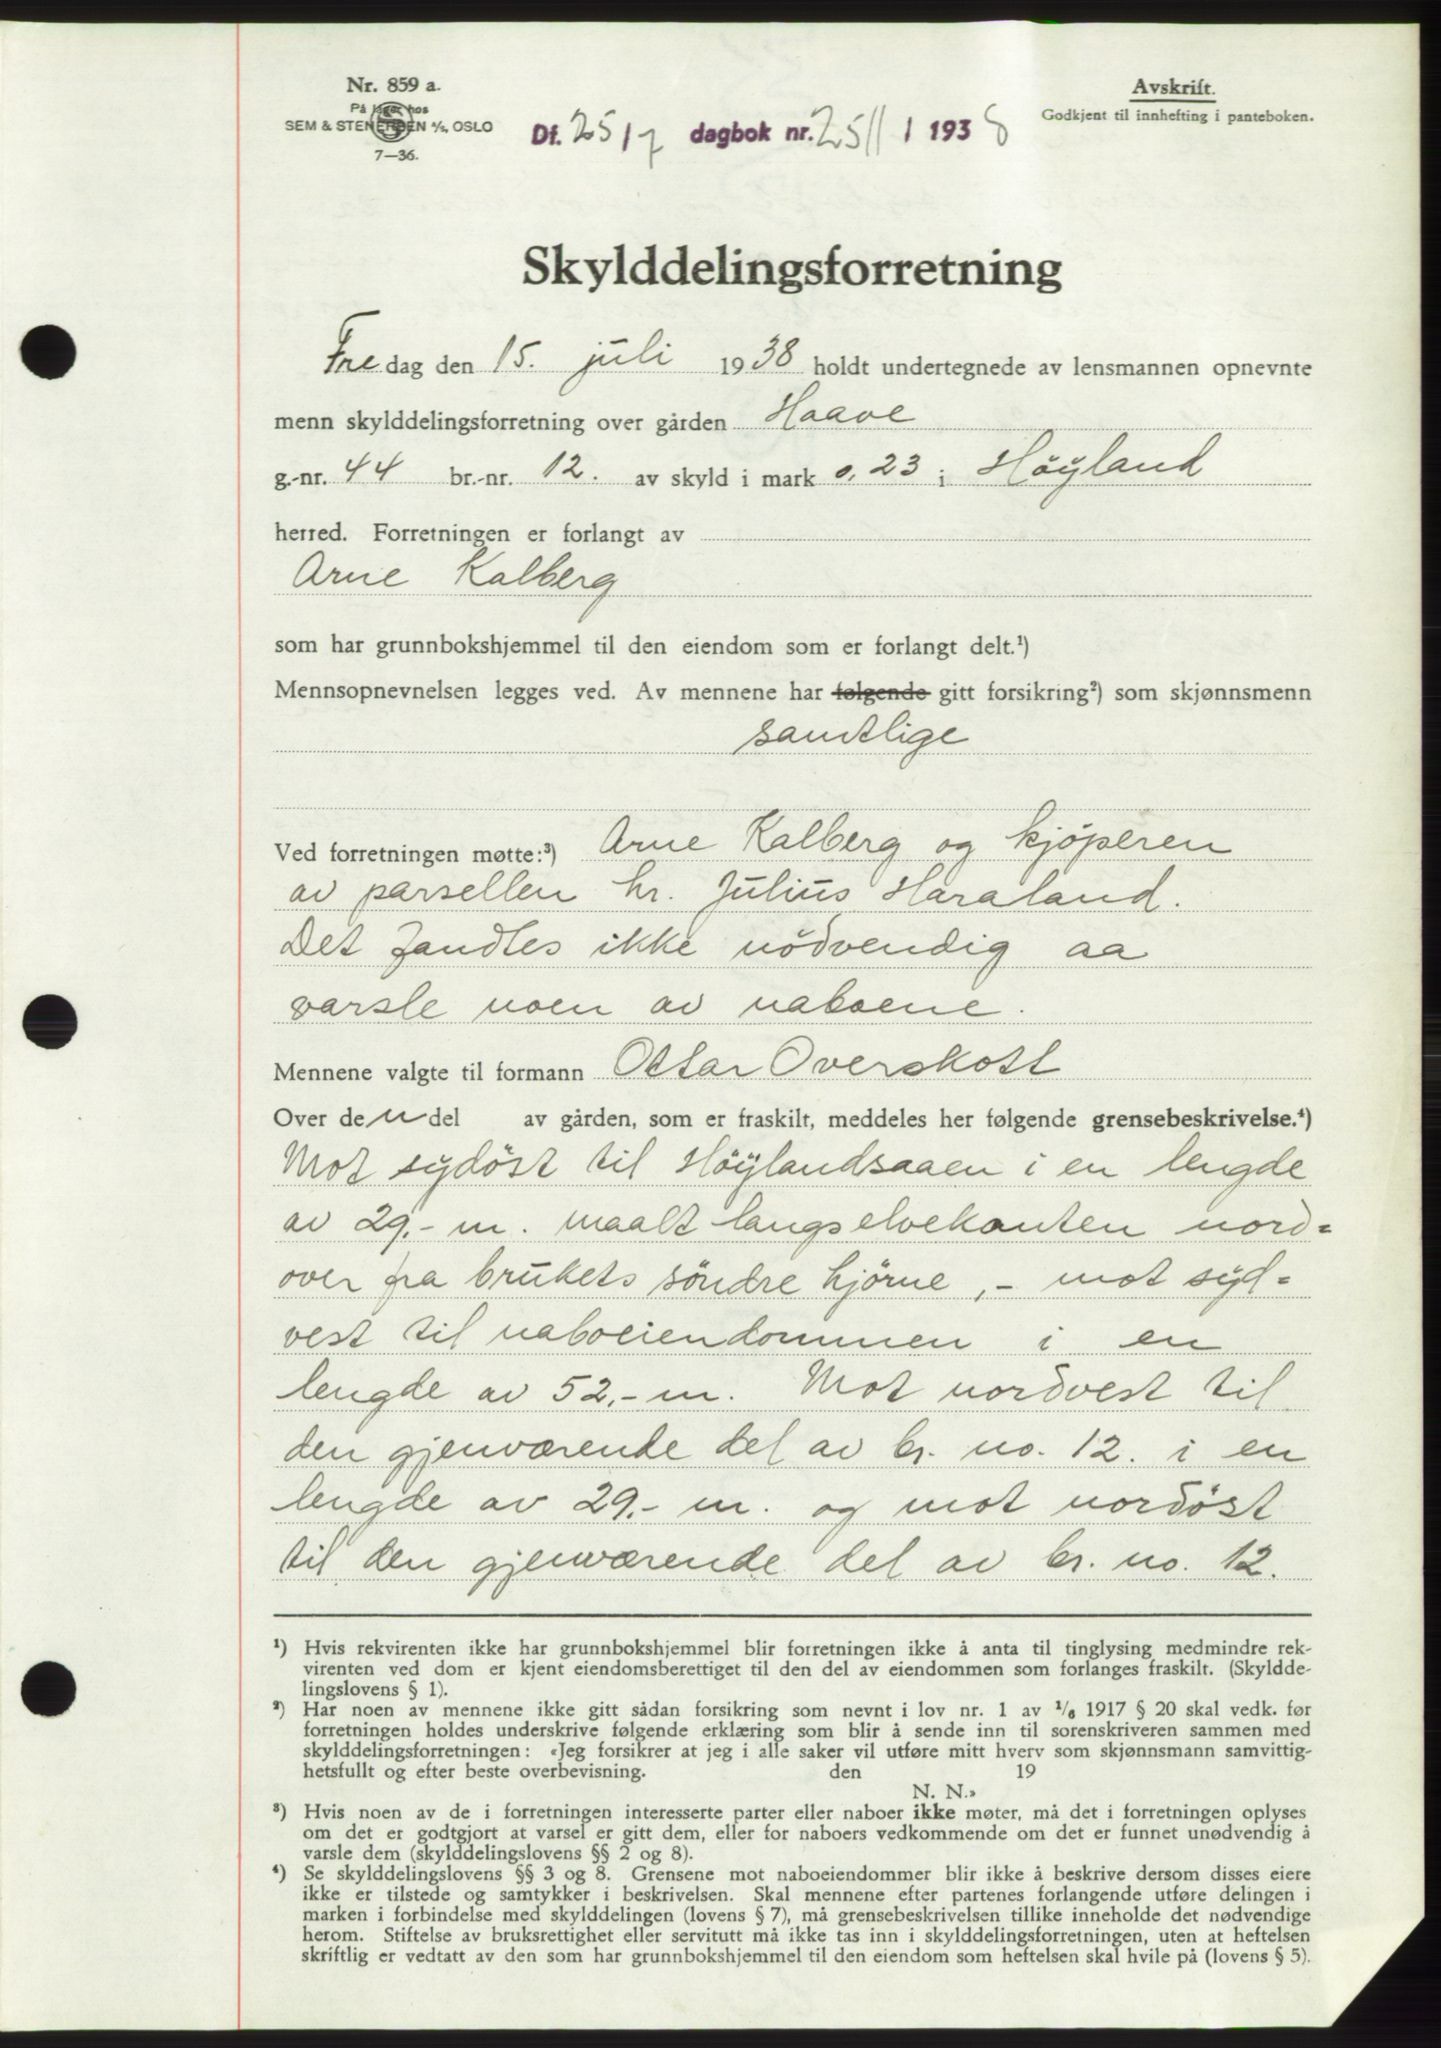 Nr. 859 a.
På lager hos
SEM & STENERSEN A/S, OSLO
7—36.
Df. 25/7 dagbok nr. 2511 / 1938
Avskrift.
Godkjent til innhefting i panteboken.
Skylddelingsforretning
Fredag den 15. juli 1938 holdt undertegnede av lensmannen opnevnte
menn skylddelingsforretning over gården Haave
g.-nr. 44 br.-nr. 12. av skyld i mark 0,23 i Höyland
herred. Forretningen er forlangt av
Arne Kalberg
som har grunnbokshjemmel til den eiendom som er forlangt delt.¹)
Mennsopnevnelsen legges ved. Av mennene har følgende gitt forsikring²) som skjønnsmenn
samtlige
Ved forretningen møtte:³) Arne Kalberg og kjöperen
av parsellen hr. Julius Haraland.
Det fandtes ikke nödvendig aa
varsle noen av naboene.
Mennene valgte til formann Ottar Overskott
Over den del av gården, som er fraskilt, meddeles her følgende grensebeskrivelse.⁴)
Mot sydöst til Höylandsaaen i en lengde
av 29,- m. maalt langs elvekanten nord=
over fra brukets söndre hjörne, - mot syd=
vest til naboeiendommen i en
lengde av 52,- m. Mot nordvest til
den gjenværende del av br. no. 12. i en
lengde av 29,- m. og mot nordöst
til den gjenværende del av br. no. 12.
¹) Hvis rekvirenten ikke har grunnbokshjemmel blir forretningen ikke å anta til tinglysing medmindre rek-
virenten ved dom er kjent eiendomsberettiget til den del av eiendommen som forlanges fraskilt. (Skyldde-
lingslovens § 1).
²) Har noen av mennene ikke gitt sådan forsikring som nevnt i lov nr. 1 av 1/6 1917 § 20 skal vedk. før
forretningen holdes underskrive følgende erklæring som blir å sende inn til sorenskriveren sammen med
skylddelingsforretningen: «Jeg forsikrer at jeg i alle saker vil utføre mitt hverv som skjønnsmann samvittig-
hetsfullt og efter beste overbevisning. den 19
N. N.»
³) Hvis noen av de i forretningen interesserte parter eller naboer ikke møter, må det i forretningen oplyses
om det er godtgjort at varsel er gitt dem, eller for naboers vedkommende om det er funnet unødvendig å
varsle dem (skylddelingslovens §§ 2 og 8).
⁴) Se skylddelingslovens §§ 3 og 8. Grensene mot naboeiendommer blir ikke å beskrive dersom disses eiere
ikke er tilstede og samtykker i beskrivelsen. Skal mennene efter partenes forlangende utføre delingen i
marken i forbindelse med skylddelingen (lovens § 7), må grensebeskrivelsen tillike inneholde det nødvendige
herom. Stiftelse av bruksrettighet eller servitutt må ikke tas inn i skylddelingsforretningen, uten at heftelsen
skriftlig er vedtatt av den som har grunnbokshjemmel til den eiendom som heftelsen skal hvile på (lovens § 5).